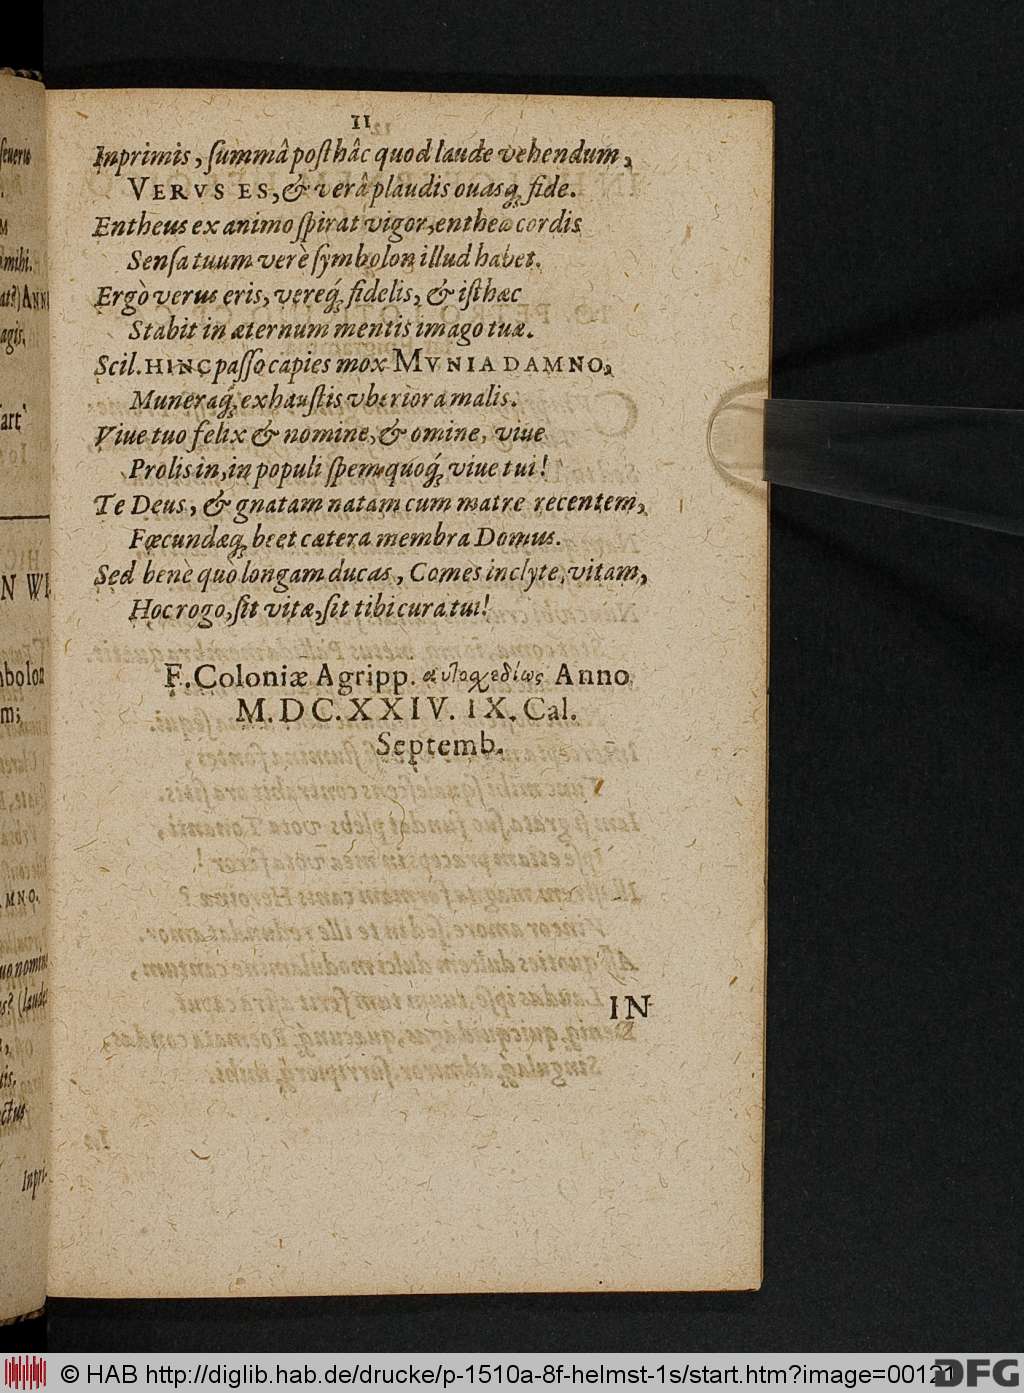 11
Inprimis, summâ posthâc quod laude vehendum,
VERVS ES, & verâ plaudis ouasq; fide.
Entheus ex animo spirat vigor, entheæ cordis
Sensa tuum verè symbolon illud habet.
Ergò verus eris, vereq́; fidelis, & isthæc
Stabit in æternum mentis imago tuæ.
Scil. HINC passo capies mox MVNIA DAMNO,
Muneraq́; exhaustis vberiora malis.
Viue tuo felix & nomine, & omine, viue
Prolis in, in populi spem quoq́; viue tui!
Te Deus, & gnatam natam cum matre recentem,
Fœcundæq; beet cætera membra Domus.
Sed benè quò longam ducas, Comes inclyte, vitam,
Hoc rogo, sit vitæ, sit tibi cura tui!
F. Coloniæ Agripp. αὐτοχεδίως Anno
M. DC. XXIV. IX. Cal.
Septemb.
IN-
seueris
mihi.
at?) ANN
agis.
art'
N WI
bolon
m;
MNO.
uo nomine
s? (laude
uis,
ctus
Inpri-
© HAB http://diglib.hab.de/drucke/p-1510a-8f-helmst-1s/start.htm?image=00121
DFG